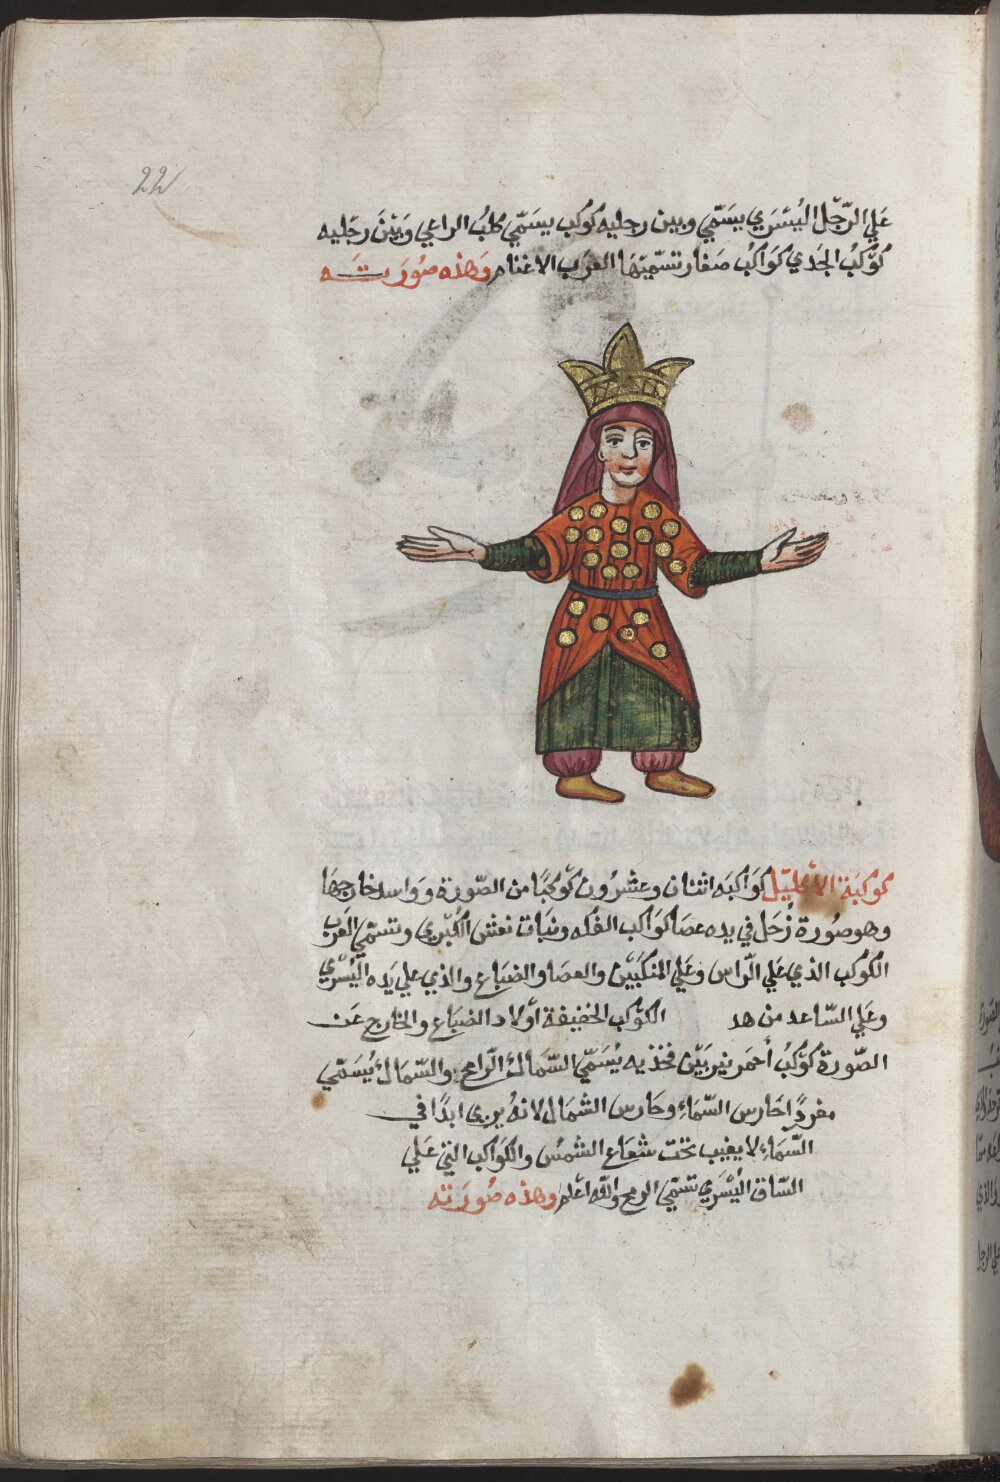 22
علي الرّجْل اليُسْرَي يسَمّي وبين رجليه كوكب يسَمّي كلبُ الراعي وَبَيْنَ رجَليه
كوَّكبُ الجَدي كوَاكبُ صَغار تسَمّيَهَا العَرَب الاغنام وَهذه صُورَتَه
كوكبَة الأكليْل كوَاكبَه اثنان وعشرُون كوَّكبًا من الصّورة وواسد خارجهَا
وهو صُورة زُحَل في يده عصَا كوَاكب الفكه ونبَات نعش الكُبْري وتسَمّي العَرب
الكوكب الذي عَلي الرّاس وعَلي المنكبَيّن والعصَا والضبَاع والذي علي يَده اليُسْري
وعَلي السّاعد من هد الكوَّكب الخفيفة أولاد الضبَاع والخارج عَن
الصّورة كوَّكبُ أحمَر نير بَيّن فخذيه يُسَمّي السّمَاك الرّامح والسّمَاك يُسَمّي
مفردًا حَارس السّمَاء وحَارس الشمَال لانهُ يري ابدًا في
السّمَاء لا يغيب تحت شعَاع الشمْس والكوَاكب التي عَلي
السّاق اليُسْري تسَمّي الرمح والله اعْلم وهذه صُورَته